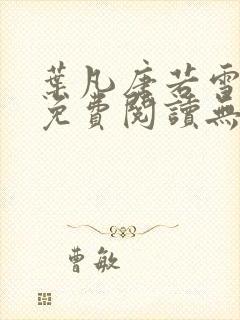 葉凡唐若雪
免費閱讀無
曹敏